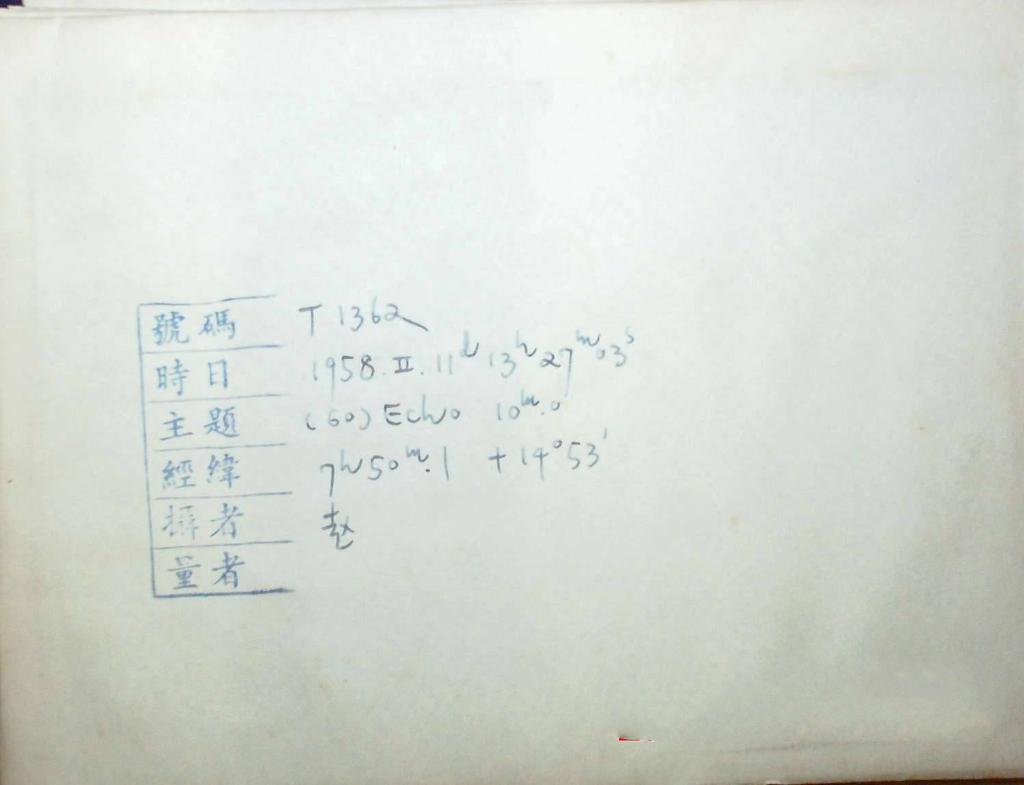 號碼 T 1362
時日 1958.II.11ᵈ 13ʰ 27ᵐ 03ˢ
主題 (60) Echo 10ᵐ.0
經緯 7ʰ50ᵐ.1 +14°53′
攝者 赵
量者